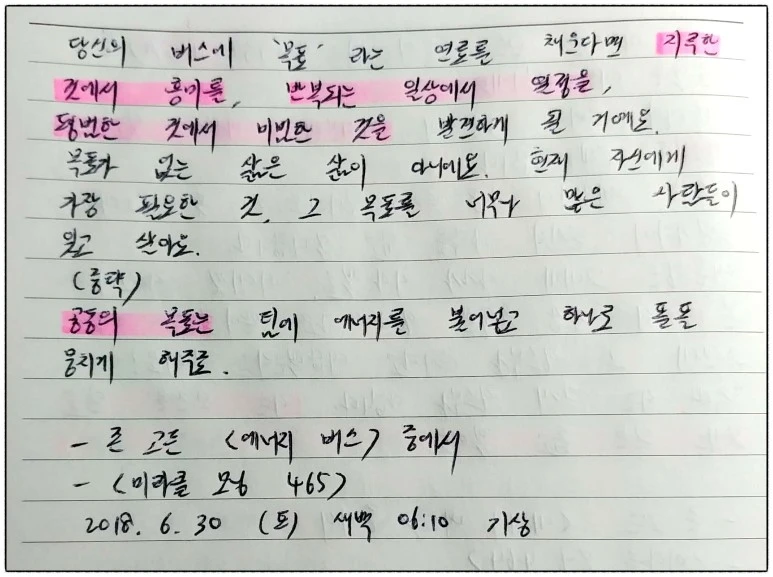 당신의 버스에 '목표' 라는 연료를 채운다면 지루한
것에서 흥미를, 반복되는 일상에서 열정을,
평범한 것에서 비범한 것을 발견하게 될 거예요.
목표가 없는 삶은 삶이 아니에요. 현재 자신에게
가장 필요한 것, 그 목표를 너무나 많은 사람들이
잊고 살아요.
(중략)
공동의 목표는 팀에 에너지를 불어넣고 하나로 똘똘
뭉치게 해주죠.
- 존 고든 <에너지 버스> 중에서
- <미라클 모닝 465>
2018. 6. 30 (토) 새벽 06:10 기상